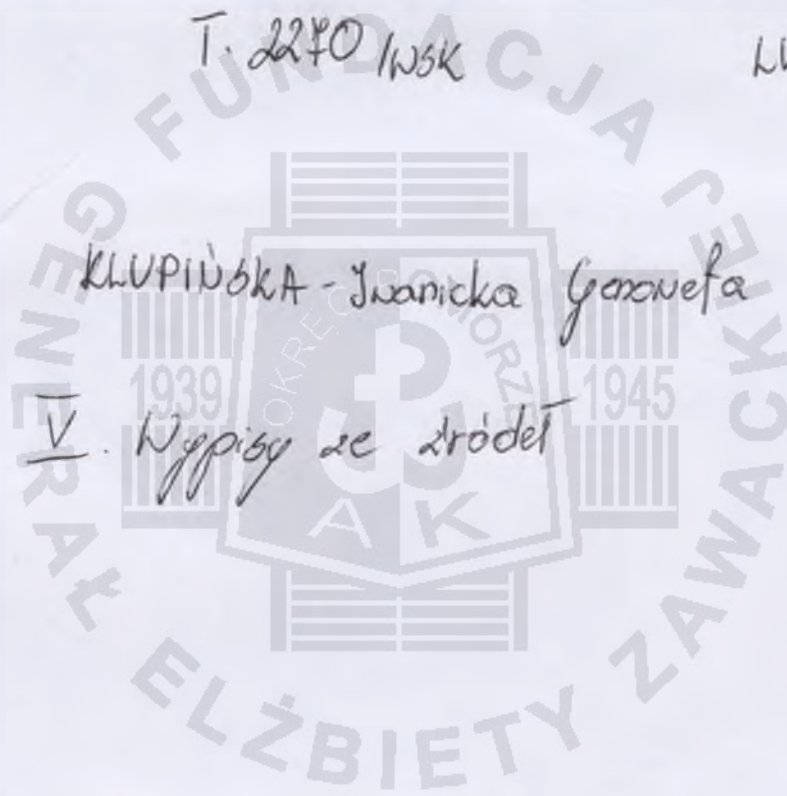 T. 2270/WSK
KLUPIŃSKA-Iwanicka Genowefa
V. Wypisy ze źródeł
FUNDACJA GENERAŁ ELŻBIETY ZAWACKIEJ
OKRĘG POMORZE
1939
1945
AK